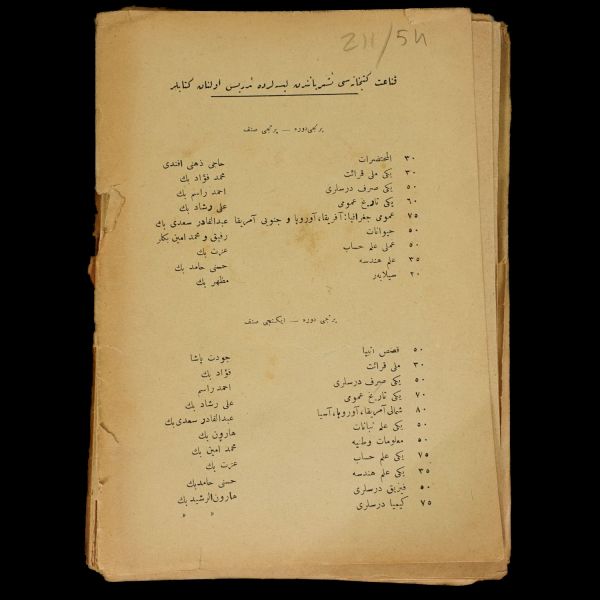 211/54
قناعت كتبخانه‌سى نشرياتندن ليسه‌لرده تدريس اولنان كتابلر
برنجى دوره — برنجى صنف
٣٠ المختصرات حاجى ذهنى افندى
٣٠ يكى ملى قرائت محمد فؤاد بك
٥٠ يكى صرف درسلرى احمد راسم بك
٦٠ يكى تاريخ عمومى على رشاد بك
٧٥ عمومى جغرافيا: آفريقا، آوروپا و جنوبى آمريقا عبدالقادر سعدى بك
٥٠ حيوانات رفيق و محمد امين بكلر
٥٠ عملى علم حساب عزت بك
٣٥ علم هندسه حسنى حامد بك
٢٠ سيلابه‌ر مظهر بك
برنجى دوره — ايكنجى صنف
٥٠ قصص انبيا جودت پاشا
٣٠ ملى قرائت فؤاد بك
٥٠ يكى صرف درسلرى احمد راسم
٧٠ يكى تاريخ عمومى على رشاد بك
٨٠ شمالى آمريقا، آوروپا، آسيا عبدالقادر سعدى بك
٥٠ يكى علم نباتات هارون بك
٥٠ معلومات وطنيه محمد امين بك
٧٥ يكى علم حساب عزت بك
٣٥ يكى علم هندسه حسنى حامد بك
٥٠ فيزيق درسلرى هارون الرشيد بك
٧٥ كيميا درسلرى » »